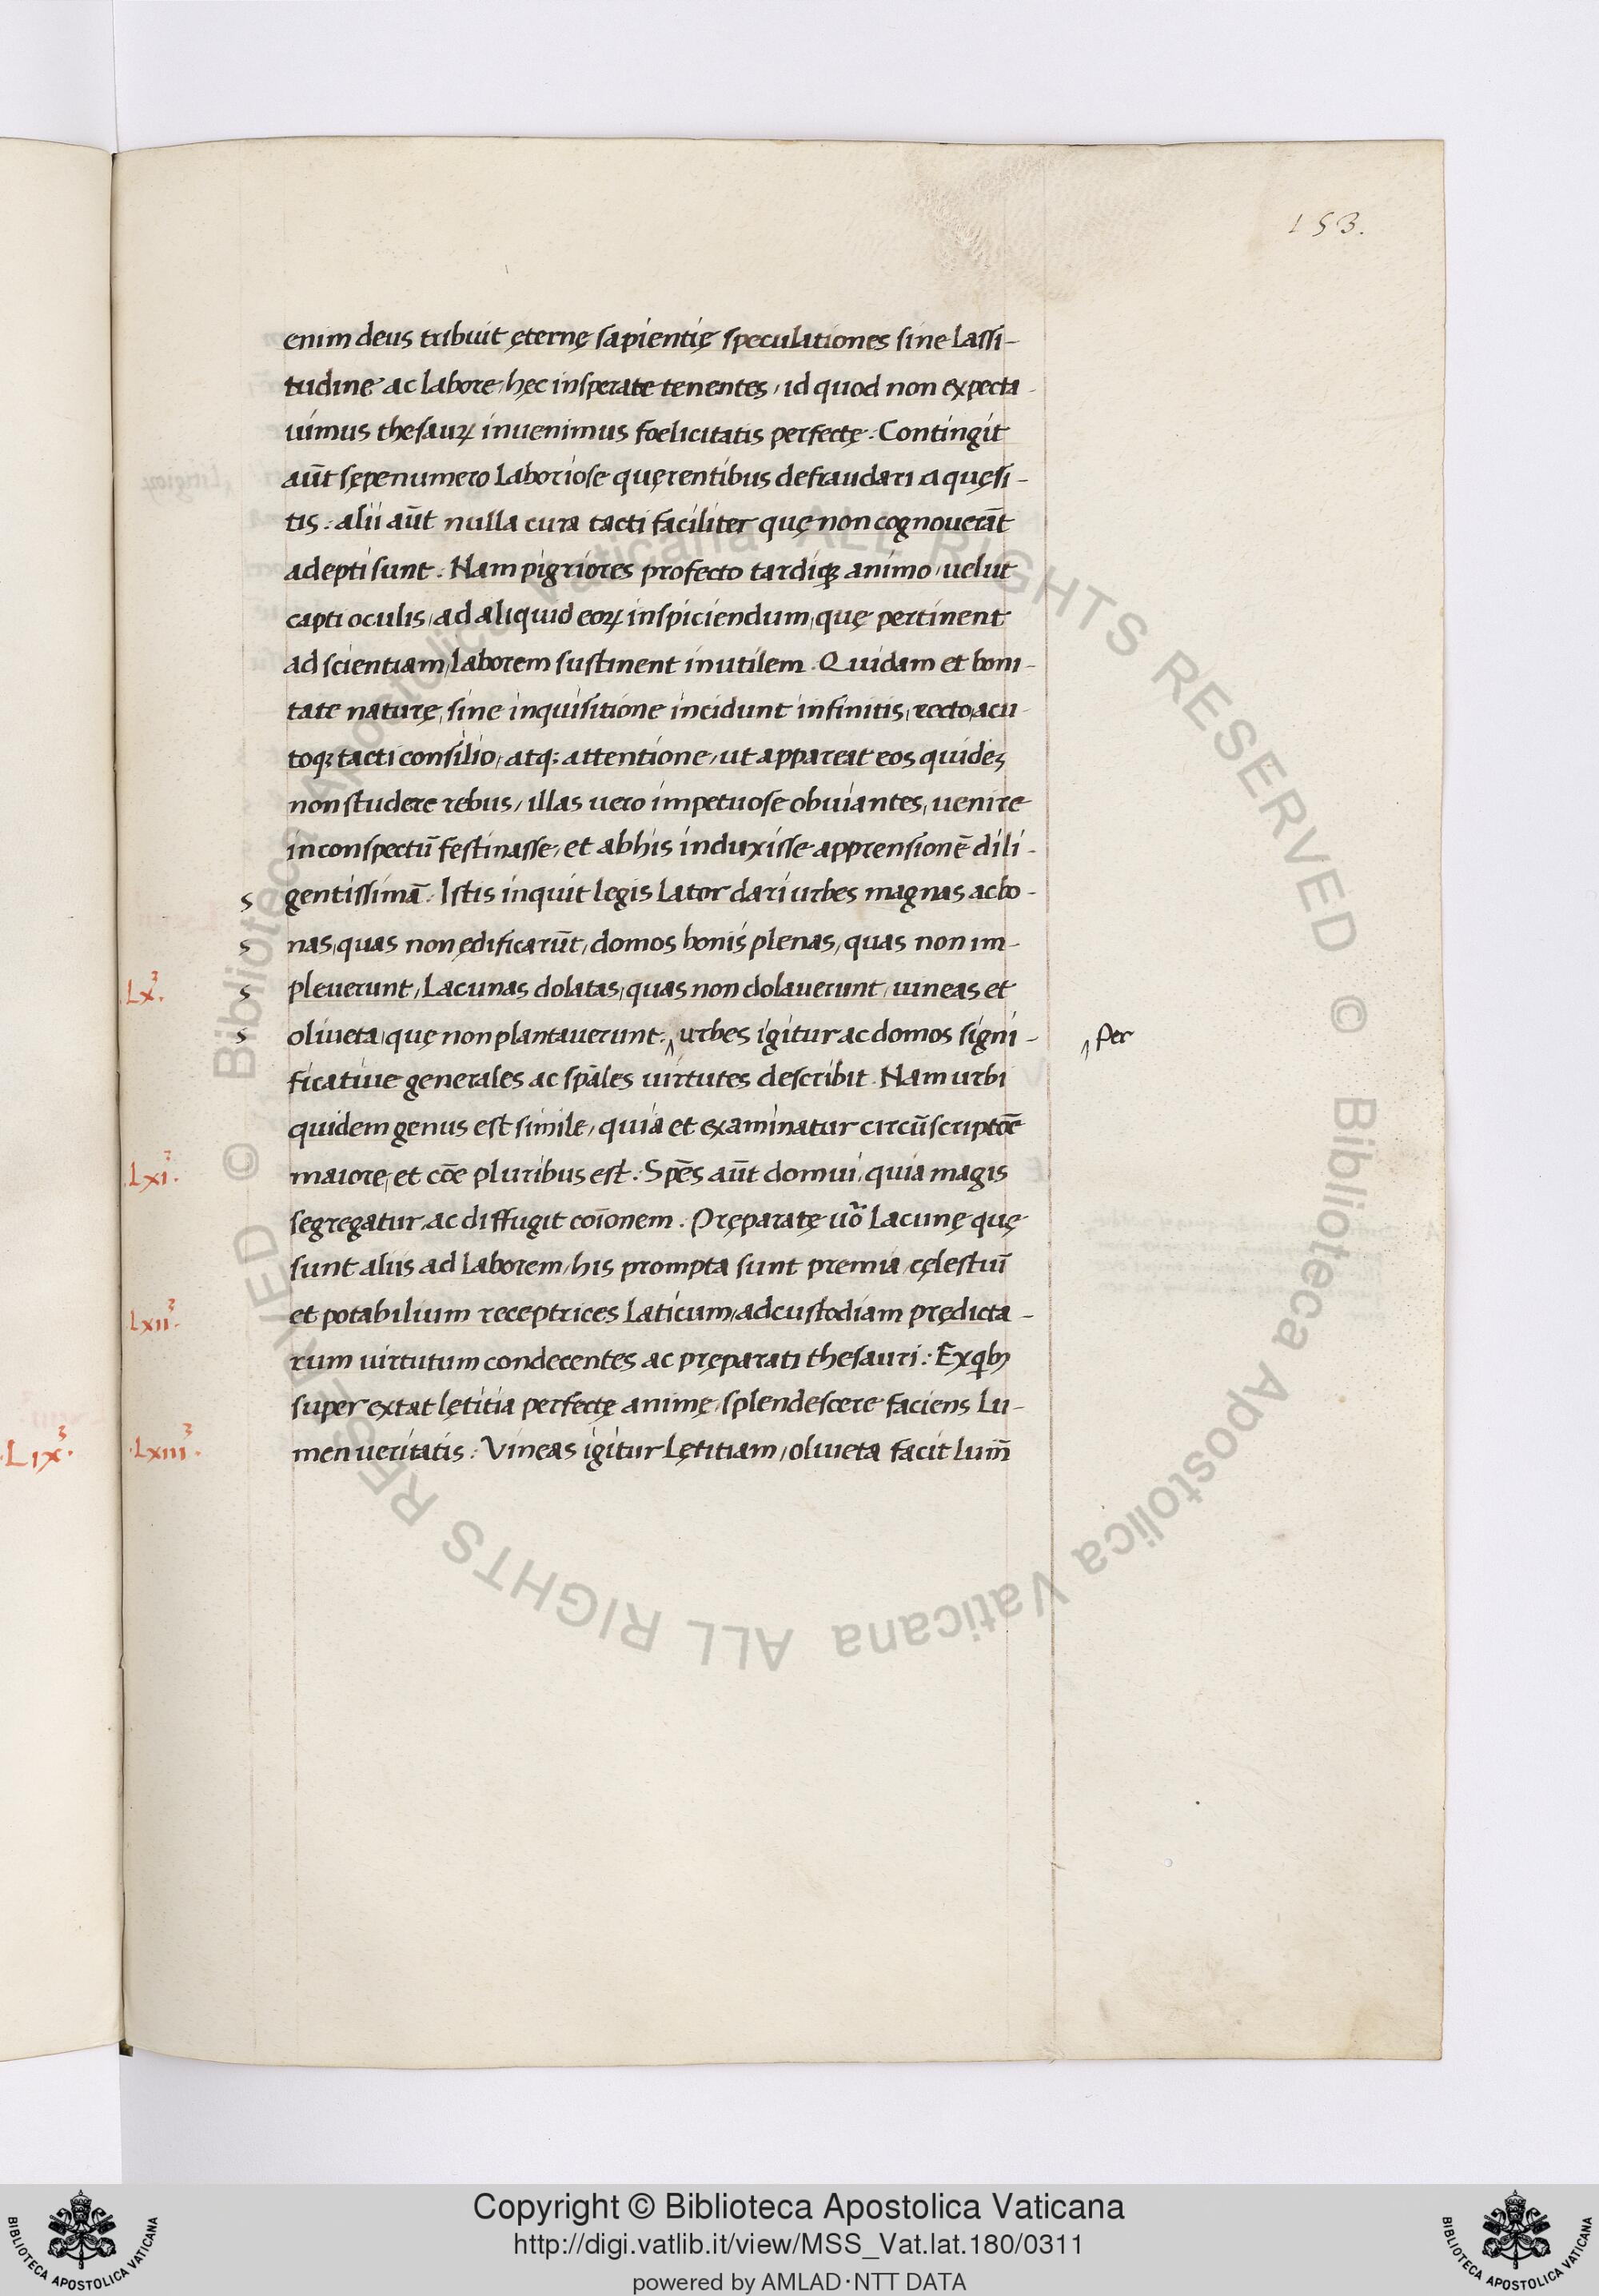 153.
enim deus tribuit ęternę sapientię speculationes sine lassi-
tudine ac labore, hęc insperate tenentes, id quod non expecta-
uimus thesauꝝ inuenimus foelicitatis perfectę. Contingit
aūt sępenumero laboriose quęrentibus defraudari a quęsi-
tis. alii aūt nulla cura tacti faciliter quę non cognouerāt
adepti sunt. Nam pigriores profecto tardiqꝫ animo, uelut
capti oculis, ad aliquid eoꝝ inspiciendum, quę pertinent
ad scientiam, laborem sustinent inutilem. Quidam et boni-
tate naturę, sine inquisitione incidunt infinitis, recto, acu-
toqꝫ tacti consilio, atqꝫ attentione, ut appareat eos quideꝫ
non studere rebus, illas uero impetuose obuiantes, uenire
in conspectū festinasse, et ab his induxisse apprensionē dili-
s gentissimā. Istis inquit legis lator dari urbes magnas ac bo-
s nas, quas non ędificarūt, domos bonis plenas, quas non im-
.Lx³. s pleuerunt, lacunas dolatas, quas non dolauerunt, uineas et
s oliueta, quę non plantauerunt. ‸ urbes igitur ac domos signi- ‸ Per
ficatiue generales ac spāles uirtutes describit. Nam urbi
quidem genus est simile, quia et examinatur circūscriptōe
.Lxi³. maiore, et cōe pluribus est. Spēs aūt domui, quia magis
segregatur, ac diffugit coīonem. Pręparatę uō lacunę quę
sunt aliis ad laborem, his prompta sunt premia, cęlestuī
.Lxii³. et potabilium receptrices laticum, ad custodiam prędicta-
rum uirtutum condecentes ac pręparati thesauri. Ex qbꝫ
super extat lętitia perfectę animę, splendescere faciens lu-
.Lix³. .Lxiii³. men ueritatis. Vineas igitur lętitiam, oliueta facit lum̄
Copyright © Biblioteca Apostolica Vaticana
http://digi.vatlib.it/view/MSS_Vat.lat.180/0311
powered by AMLAD·NTT DATA
BIBLIOTECA APOSTOLICA VATICANA
BIBLIOTECA APOSTOLICA VATICANA
© Biblioteca Apostolica Vaticana ALL RIGHTS RESERVED © Biblioteca Apostolica Vaticana ALL RIGHTS RESERVED